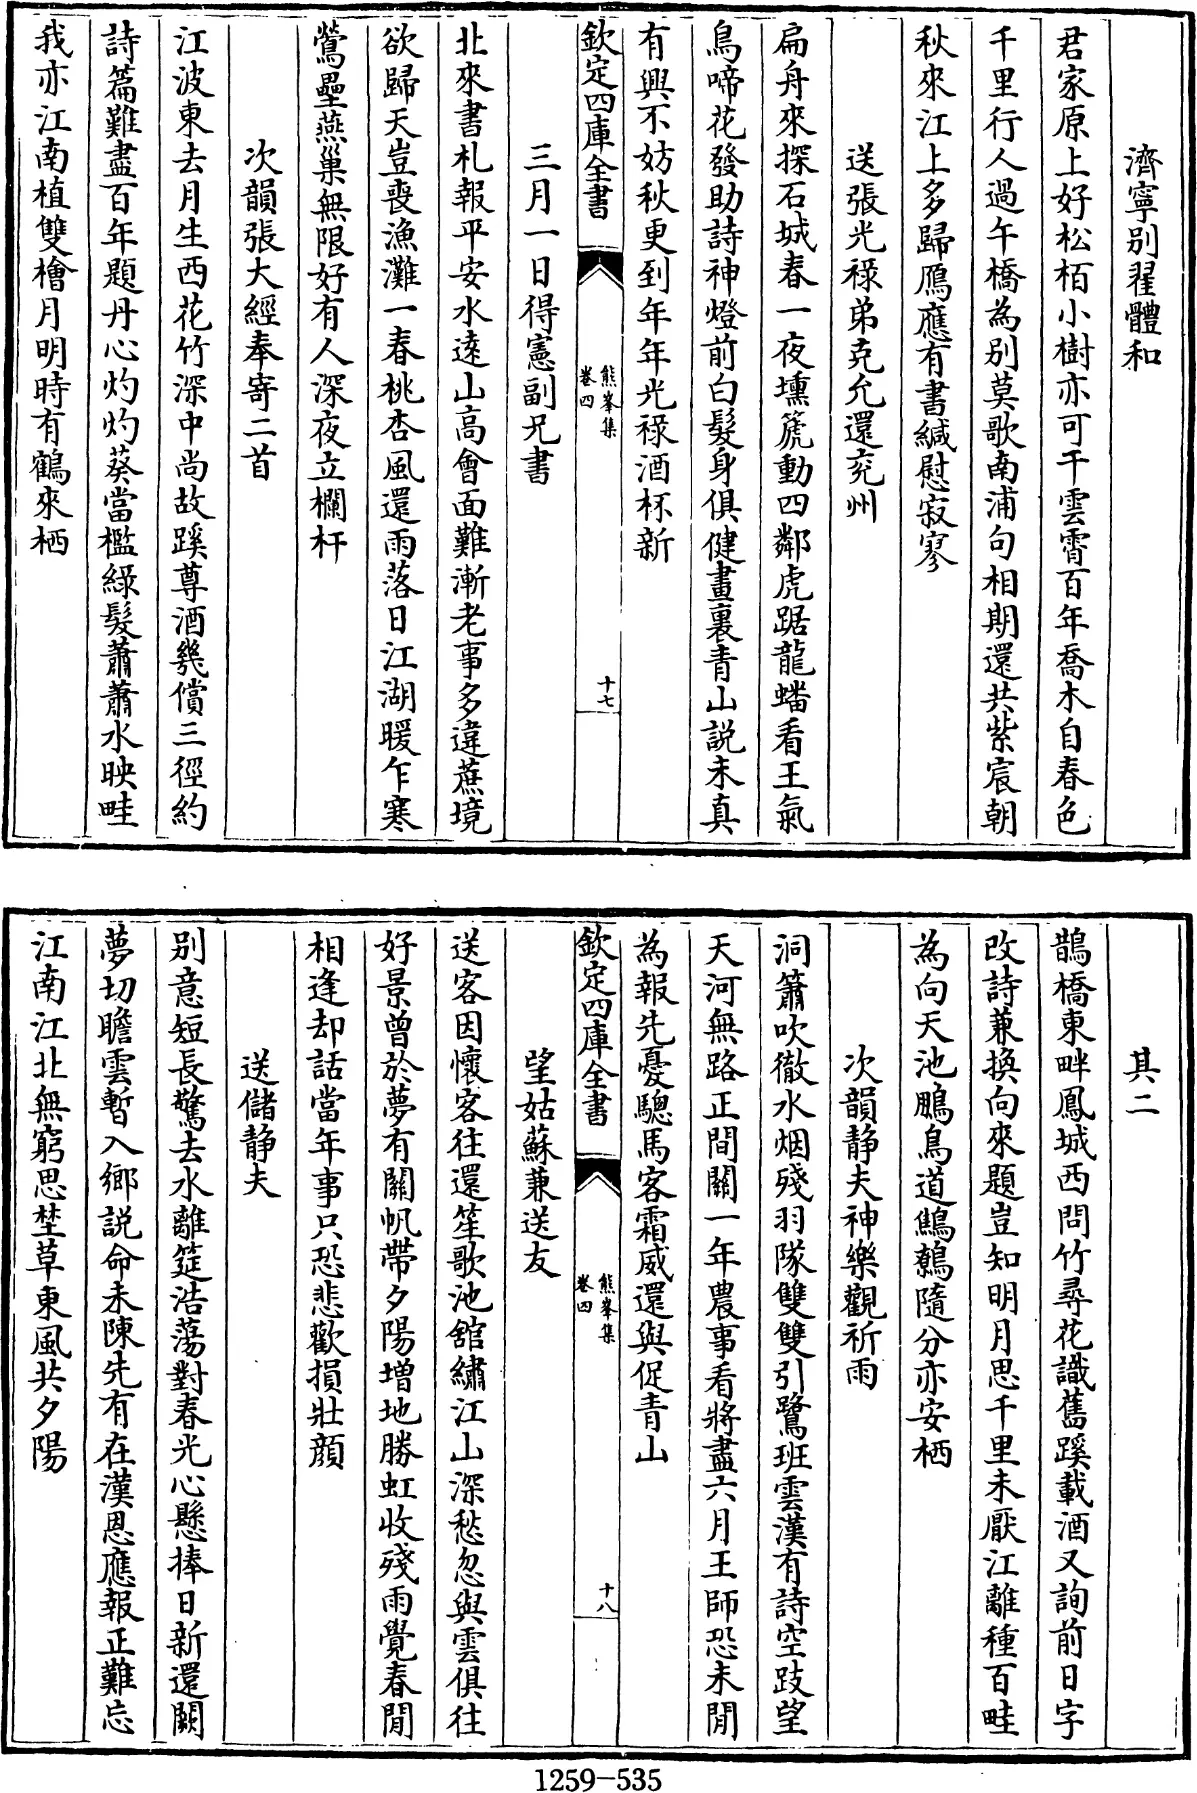 濟寧别翟體和
君家原上好松栢小樹亦可干雲霄百年喬木自春色
千里行人過午橋為别莫歌南浦句相期還共紫宸朝
秋來江上多歸鴈應有書緘慰寂寥
送張光祿弟克允還兖州
扁舟來探石城春一夜壎箎動四鄰虎踞龍蟠看王氣
鳥啼花發助詩神燈前白髮身俱健畫裏青山説未真
有興不妨秋更到年年光祿酒杯新
欽定四庫全書
熊峯集
卷四
十七
三月一日得憲副兄書
北來書札報平安水遠山高會面難漸老事多違蔗境
欲歸天豈喪漁灘一春桃杏風還雨落日江湖暖乍寒
鶯壘燕巢無限好有人深夜立欄杆
次韻張大經奉寄二首
江波東去月生西花竹深中尚故蹊尊酒幾償三徑約
詩篇難盡百年題丹心灼灼葵當檻緑髮蕭蕭水映畦
我亦江南植雙檜月明時有鶴來栖
其二
鵲橋東畔鳳城西問竹尋花識舊蹊載酒又詢前日字
改詩兼換向來題豈知明月思千里未厭江離種百畦
為向天池鵬鳥道鷦鷯隨分亦安栖
次韻靜夫神樂觀祈雨
洞簫吹徹水烟殘羽隊雙雙引鷺班雲漢有詩空跂望
天河無路正間關一年農事看將盡六月王師恐未閒
為報先憂驄馬客霜威還與促青山
欽定四庫全書
熊峯集
卷四
十八
望姑蘇兼送友
送客因懷客往還笙歌池舘繡江山深愁忽與雲俱往
好景曾於夢有關帆帶夕陽増地勝虹收殘雨覺春閒
相逢却話當年事只恐悲歡損壯顔
送儲靜夫
别意短長驚去水離筵浩蕩對春光心懸捧日新還闕
夢切瞻雲暫入鄉説命未陳先有在漢恩應報正難忘
江南江北無窮思埜草東風共夕陽
1259-535